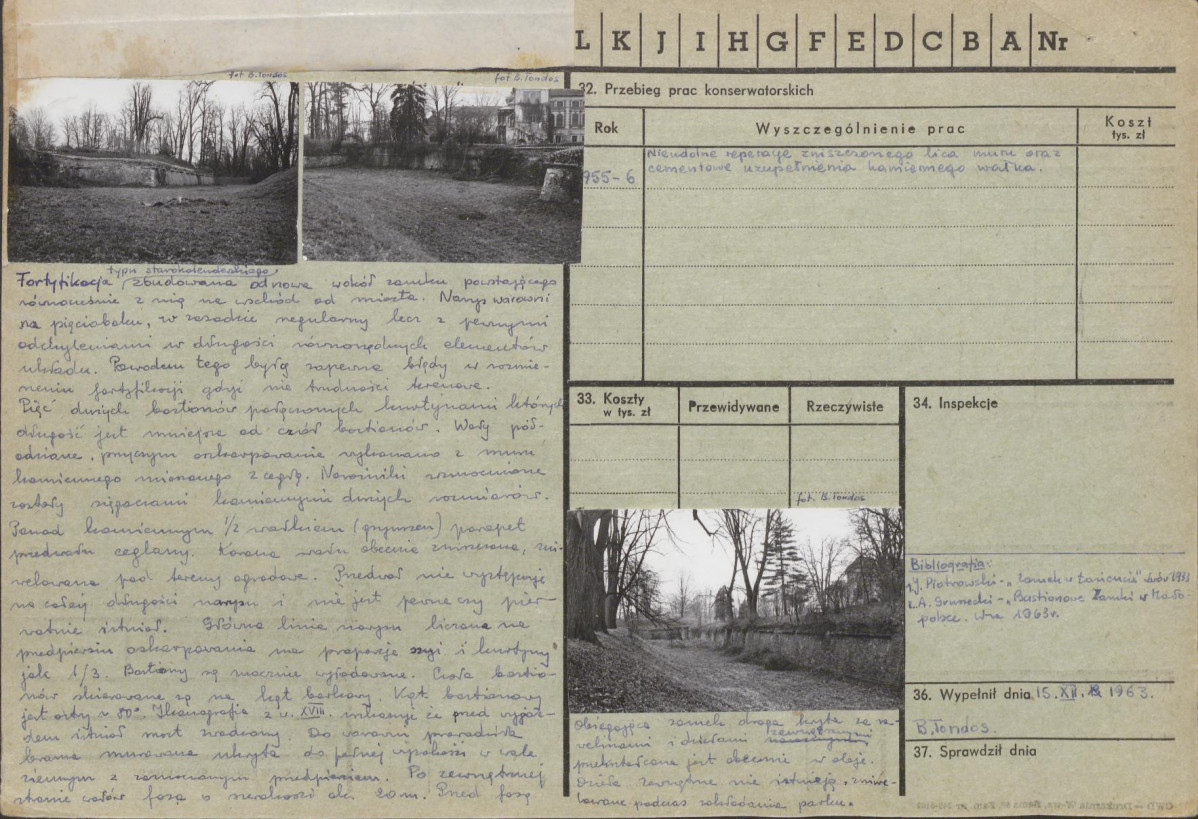 L K J I H G F E D C B A Nr
fot. B. Tondos
fot B. Tondos
32. Przebieg prac konserwatorskich
Rok
Wyszczególnienie prac
Koszt
tys. zł
955-6
Nieudolne reperacje zniszczonego lica muru oraz
cementowe uzupełnienia kamiennego wałka.
typu staroholenderskiego
Fortyfikacja zbudowana od nowa wokół zamku powstającego
równocześnie z nią na wschód od miasta. Narys warowni
na pięcioboku, w zasadzie regularny lecz z pewnymi
odchyleniami w długości równorzędnych elementów
układu. Powodem tego były zapewne błędy w rozmie-
rzeniu fortyfikacji gdyż nie trudności terenowe.
Pięć dużych bastionów połączonych kurtynami których
długość jest mniejsza od czół bastionów. Wały pół-
odziane, przyczym oskarpowanie wykonano z muru
kamiennego mieszanego z cegłą. Narożniki wzmocnione
zostały ciosami kamiennymi dużych rozmiarów.
Ponad kamiennym 1/2 wałkiem (gzymsem) parapet
przedwału ceglany. Korona wału obecnie zniszczona, zni-
welowana pod tereny ogrodowe. Przedwał nie występuje
na całej długości narysu i nie jest pewne czy pier-
wotnie istniał. Główna linia narysu liczona na
przedpiersiu oskarpowania ma proporcje szyi i kurtyny
jak 1/3. Bastiony są mocno wyładowane. Czoła bastio-
nów skierowane są na kąt barkowy. Kąt bastionowy
jest ostry ~ 80°. Ikonografia z w. XVIII. wskazuje że przed wyjaz-
dem istniał most zwodzony. Do zamku prowadziła
brama murowana ukryta do pełnej wysokości w wale
ziemnym z przedpiersiem. Po zewnętrznej
stronie wałów fosa o szerokości ok. 20 m. Przed fosą
33. Koszty
w tys. zł
Przewidywane
Rzeczywiste
34. Inspekcje
fot. B. Tondos
Bibliografia:
1. J. Piotrowski - „Zamek w Łańcucie" Lwów 1933
2. A. Gruszecki - „Bastionowe Zamki w Mało-
polsce. W-wa 1963r.
36. Wypełnił dnia 15. XII. 1963.
B. Tondos.
37. Sprawdził dnia
Obiegająca zamek droga kryta za ra-
zewnętrznymi
welinami i dziełami
przekształcona jest obecnie w aleję.
Dzieła zewnętrzne nie istnieją, zniwe-
lowane podczas zakładania parku.